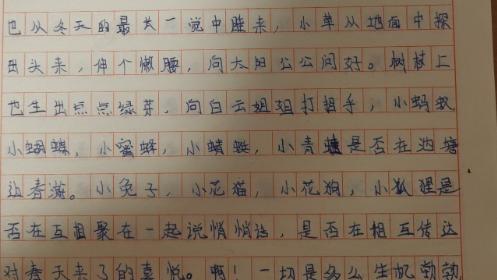 也从冬天的最长一觉中睡来，小草从地面中探
出头来，伸个懒腰，向太阳公公问好。树枝上
也生出点点绿芽，向白云姐姐打招手，小蚂蚁
小蝴蝶，小蜜蜂，小蜻蜓，小青蛙是否在边塘
让春游。小兔子，小花猫，小花狗，小狐狸是
否在互相聚在一起说悄悄话，是否在相互传达
对春天来了的喜悦。啊！一切是多么生机勃勃